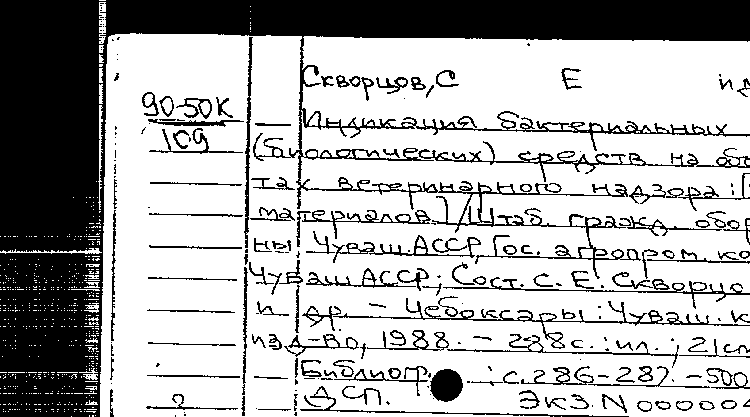 Скворцов, С Е
90-50К
109
Индикация бактериальных
(биологических) средств на
тах ветеринарного надзора:
материалов]/Штаб гражд. обор
ны Чуваш.АССР, Гос. агропром. ко
Чуваш АССР; Сост. С. Е. Скворцо
и др. – Чебоксары: Чуваш. к
изд-во, 1988. – 288с.: ил.; 21 с
Библиогр. : с.286-287. -500
ДСП. ЭКЗ.N 000004